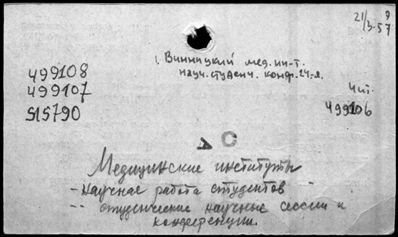 21/3-57
9
Винницкий мед. ин-т.
науч. студенч. конф. 24-я.
499108
499107
515790
Чит.
499106
А С
Медицинские институты
- научная работа студентов
-- студенческие научные сессии и
конференции.